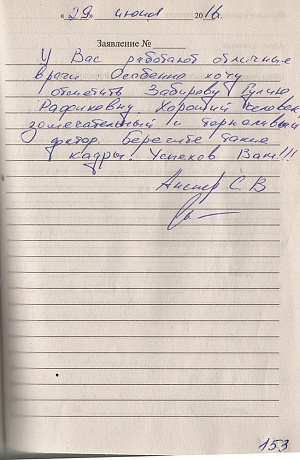 « 29 » июня 2016г.
Заявление №
У Вас работают отличные
врачи. Особенно хочу
отметить Забирову Гулию
Рафиковну. Хороший человек,
замечательный и терпеливый
доктор. Берегите такие
кадры! Успехов Вам!!!
С. В
153